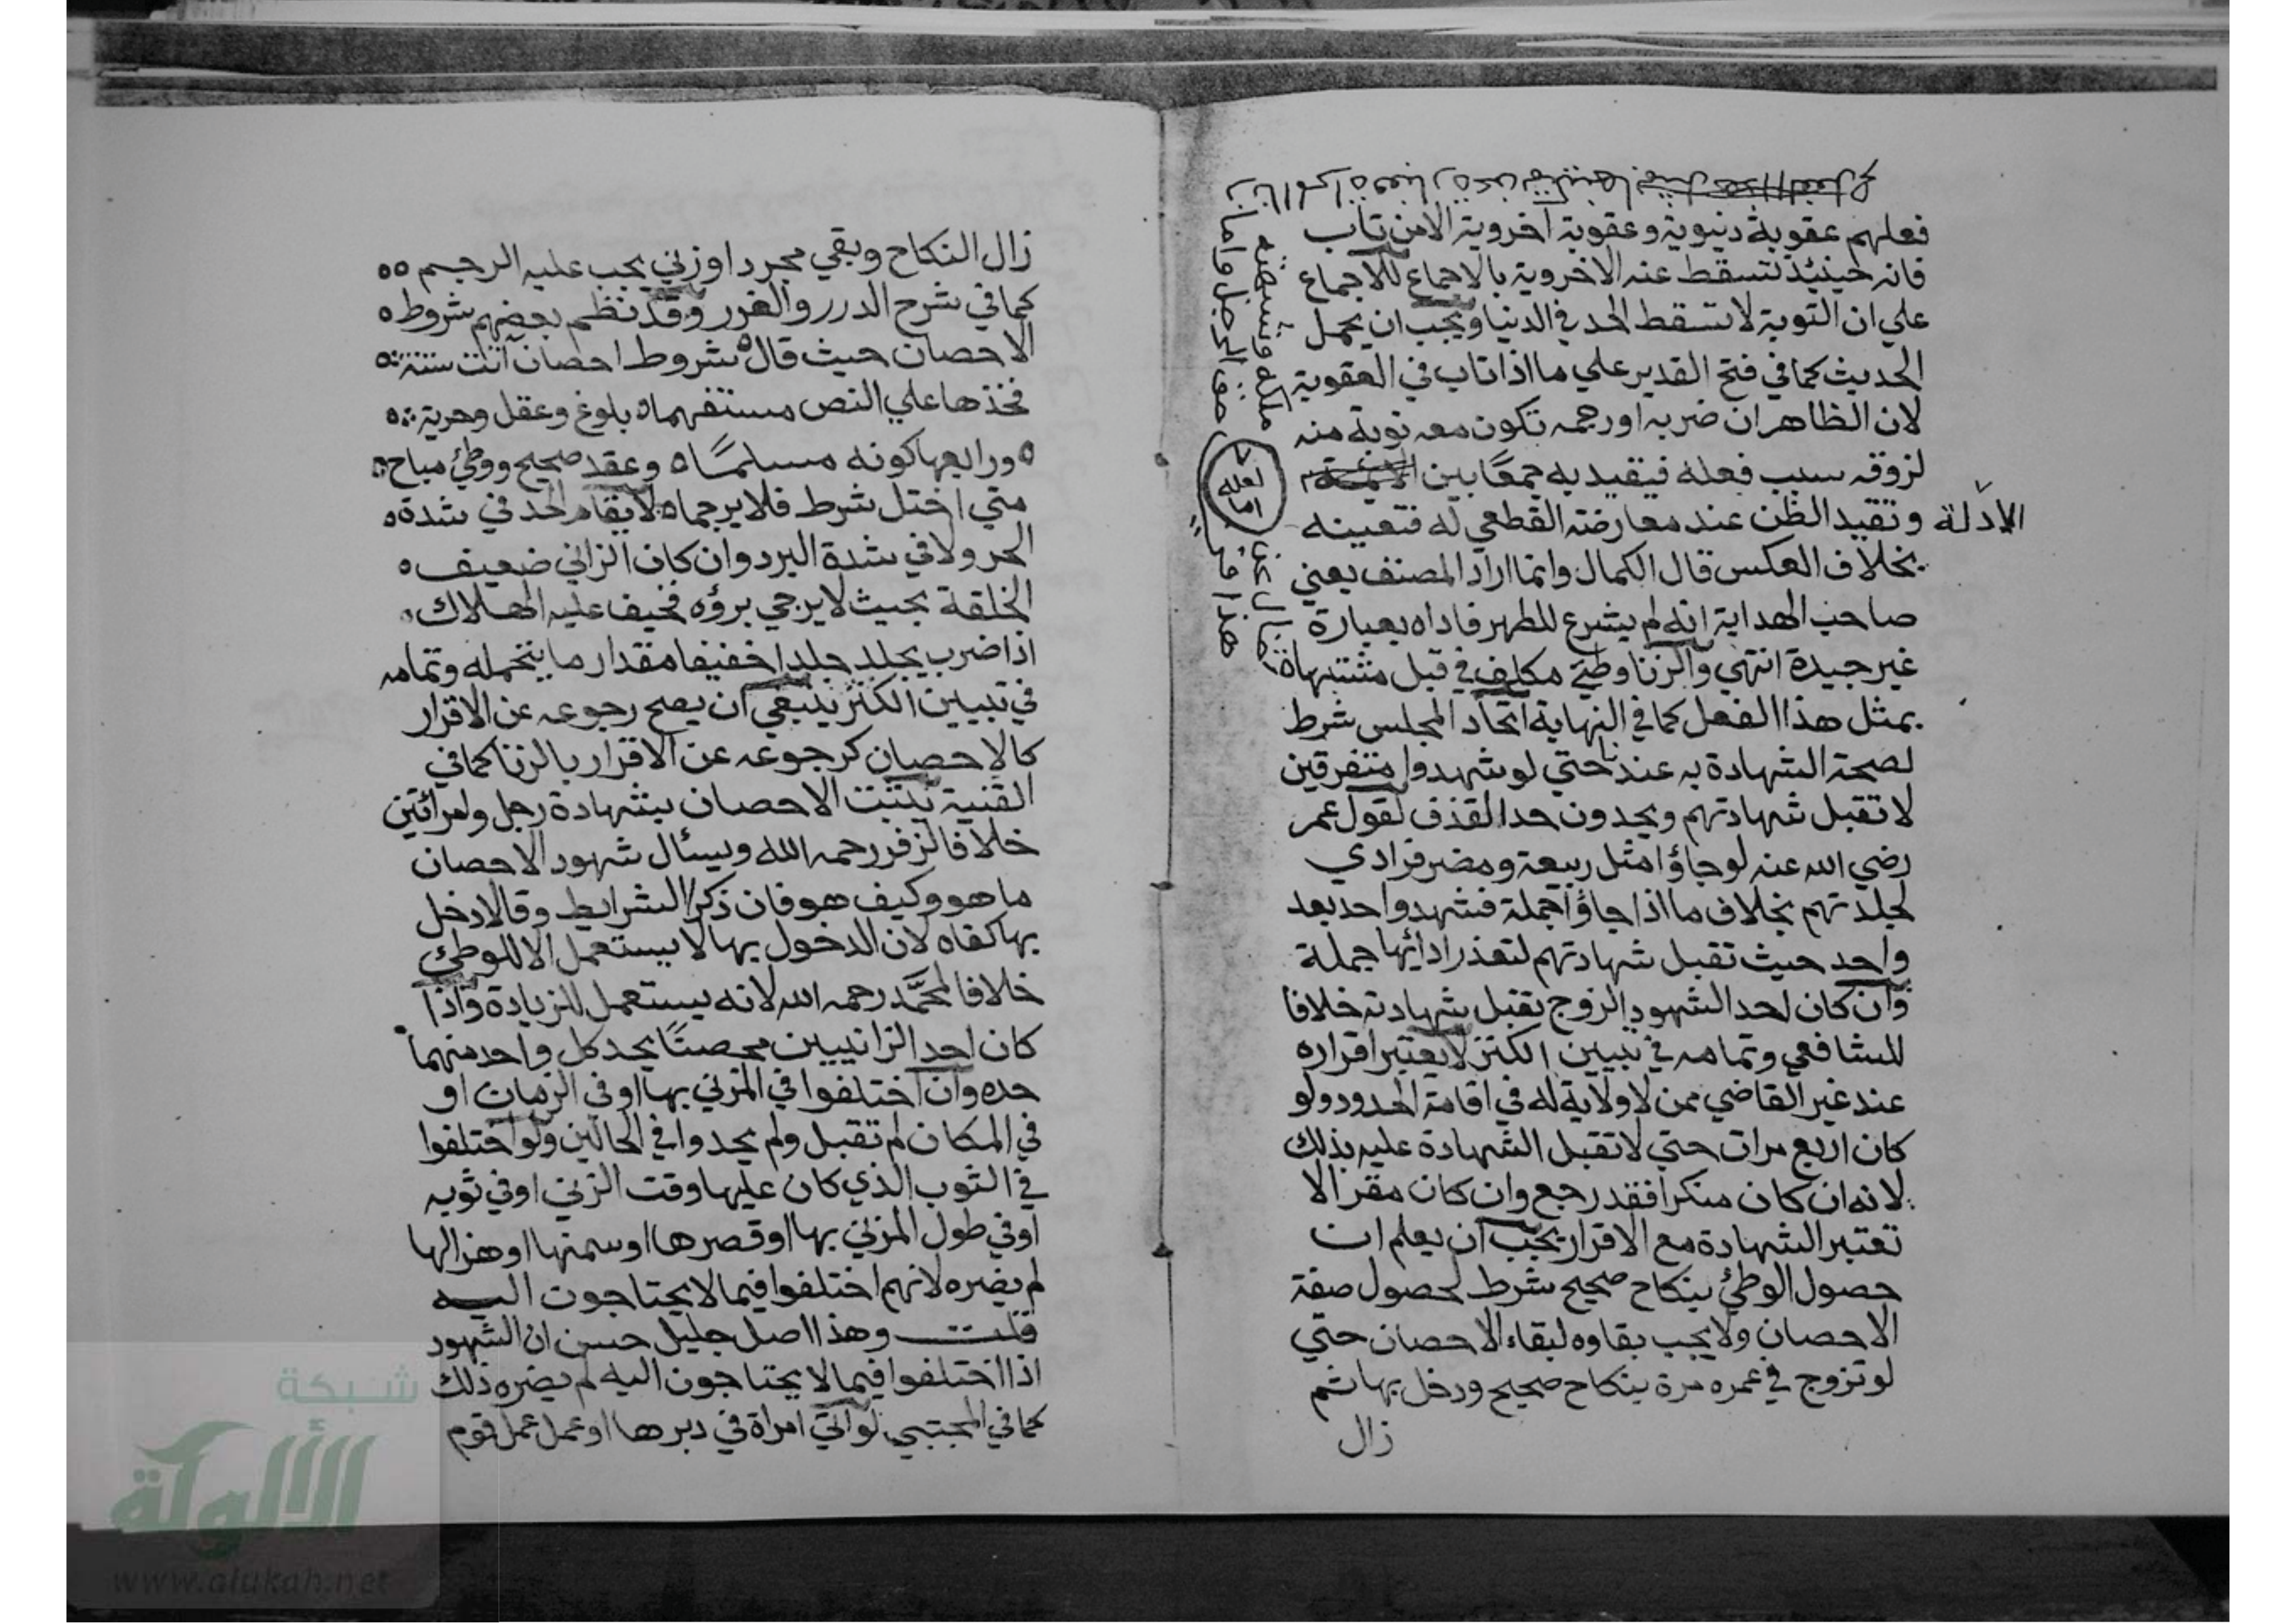 فعلهم عقوبة دنيوية وعقوبة اخروية الا من تاب
فانه حينئذ تسقط عنه الاخروية بالاجماع للاجماع
علي ان التوبة لا تسقط الحد في الدنيا ويجب ان يحمل
الحديث كما في فتح القدير علي ما اذا تاب في العقوبة
لان الظاهر ان ضربه او رجمه تكون معه توبة منه
لزوقه سبب فعله فيقيد به جمعًا بين
الادلة وتقيد الظن عند معارضة القطعي له فتعينه
بخلاف العكس قال الكمال وانما اراد المصنف يعني
صاحب الهداية انه لم يشرع للطهر فاداه بعبارة
غير جيدة انتهي والزنا وطئ مكلف في قبل مشتهاة
بمثل هذا الفعل كما في النهاية اتحاد المجلس شرط
لصحة الشهادة به عندنا حتي لو شهدوا متفرقين
لا تقبل شهادتهم ويحدون حد القذف لقول عمر
رضي الله عنه لو جاؤا مثل ربيعة ومضر فرادي
لجلدتهم بخلاف ما اذا جاؤا جملة فشهد واحد بعد
واحد حيث تقبل شهادتهم لتعذر ادائها جملة
وان كان احد الشهود الزوج تقبل شهادته خلافا
للشافعي وتمامه في تبيين الكنز لا يعتبر اقراره
عند غير القاضي ممن لا ولاية له في اقامة الحدود ولو
كان اربع مرات حتي لا تقبل الشهادة عليه بذلك
لانه ان كان منكرا فقد رجع وان كان مقرا لا
تعتبر الشهادة مع الاقرار يجب ان يعلم ان
حصول الوطئ بنكاح صحيح شرط لحصول صفة
الاحصان ولا يجب بقاوه لبقاء الاحصان حتي
لو تزوج في عمره مرة بنكاح صحيح ودخل بها ثم
زال
لعله
اما
زال النكاح وبقي مجردا وزني يجب عليه الرجم
كما في شرح الدرر والغرر وقد نظم بعضهم شروط
الاحصان حيث قال شروط احصان اتت ستة
فخذها علي النص مستفهما بلوغ وعقل وحرية
ورابعها كونه مسلمًا وعقد صحيح ووطئ مباح
متي اختل شرط فلا يرجما لا يقام الحد في شدة
الحر ولا في شدة البرد وان كان الزاني ضعيف
الخلقة بحيث لا يرجي برؤه فخيف عليه الهلاك
اذا ضرب يجلد جلدا خفيفا مقدار ما يتحمله وتمامه
في تبيين الكنز ينبغي ان يصح رجوعه عن الاقرار
كالاحصان كرجوعه عن الاقرار بالزنا كما في
القنية يثبت الاحصان بشهادة رجل وامرأتين
خلافا لزفر رحمه الله ويسئال شهود الاحصان
ما هو وكيف هو فان ذكر الشرايط وقالا دخل
بها كفاه لان الدخول بها لا يستعمل الا للوطئ
خلافا لمحمَّد رحمه الله لانه يستعمل للزيادة واذا
كان احد الزانيين محصنًا يحد كل واحد منهما
حده وان اختلفوا في المزني بها او في الزمان او
في المكان لم تقبل ولم يحدوا في الحالين ولو اختلفوا
في الثوب الذي كان عليها وقت الزني او في ثوبه
او في طول المزني بها او قصرها او سمنها او هزالها
لم يضره لانهم اختلفوا فيما لا يحتاجون اليه
قلت وهذا اصل جليل حسن ان الشهود
اذا اختلفوا فيما لا يحتاجون اليه لم يضره ذلك
كما في المجتبي لو اتي امراة في دبرها او عمل عمل قوم
شبكة
الألوكة
www.alukah.net